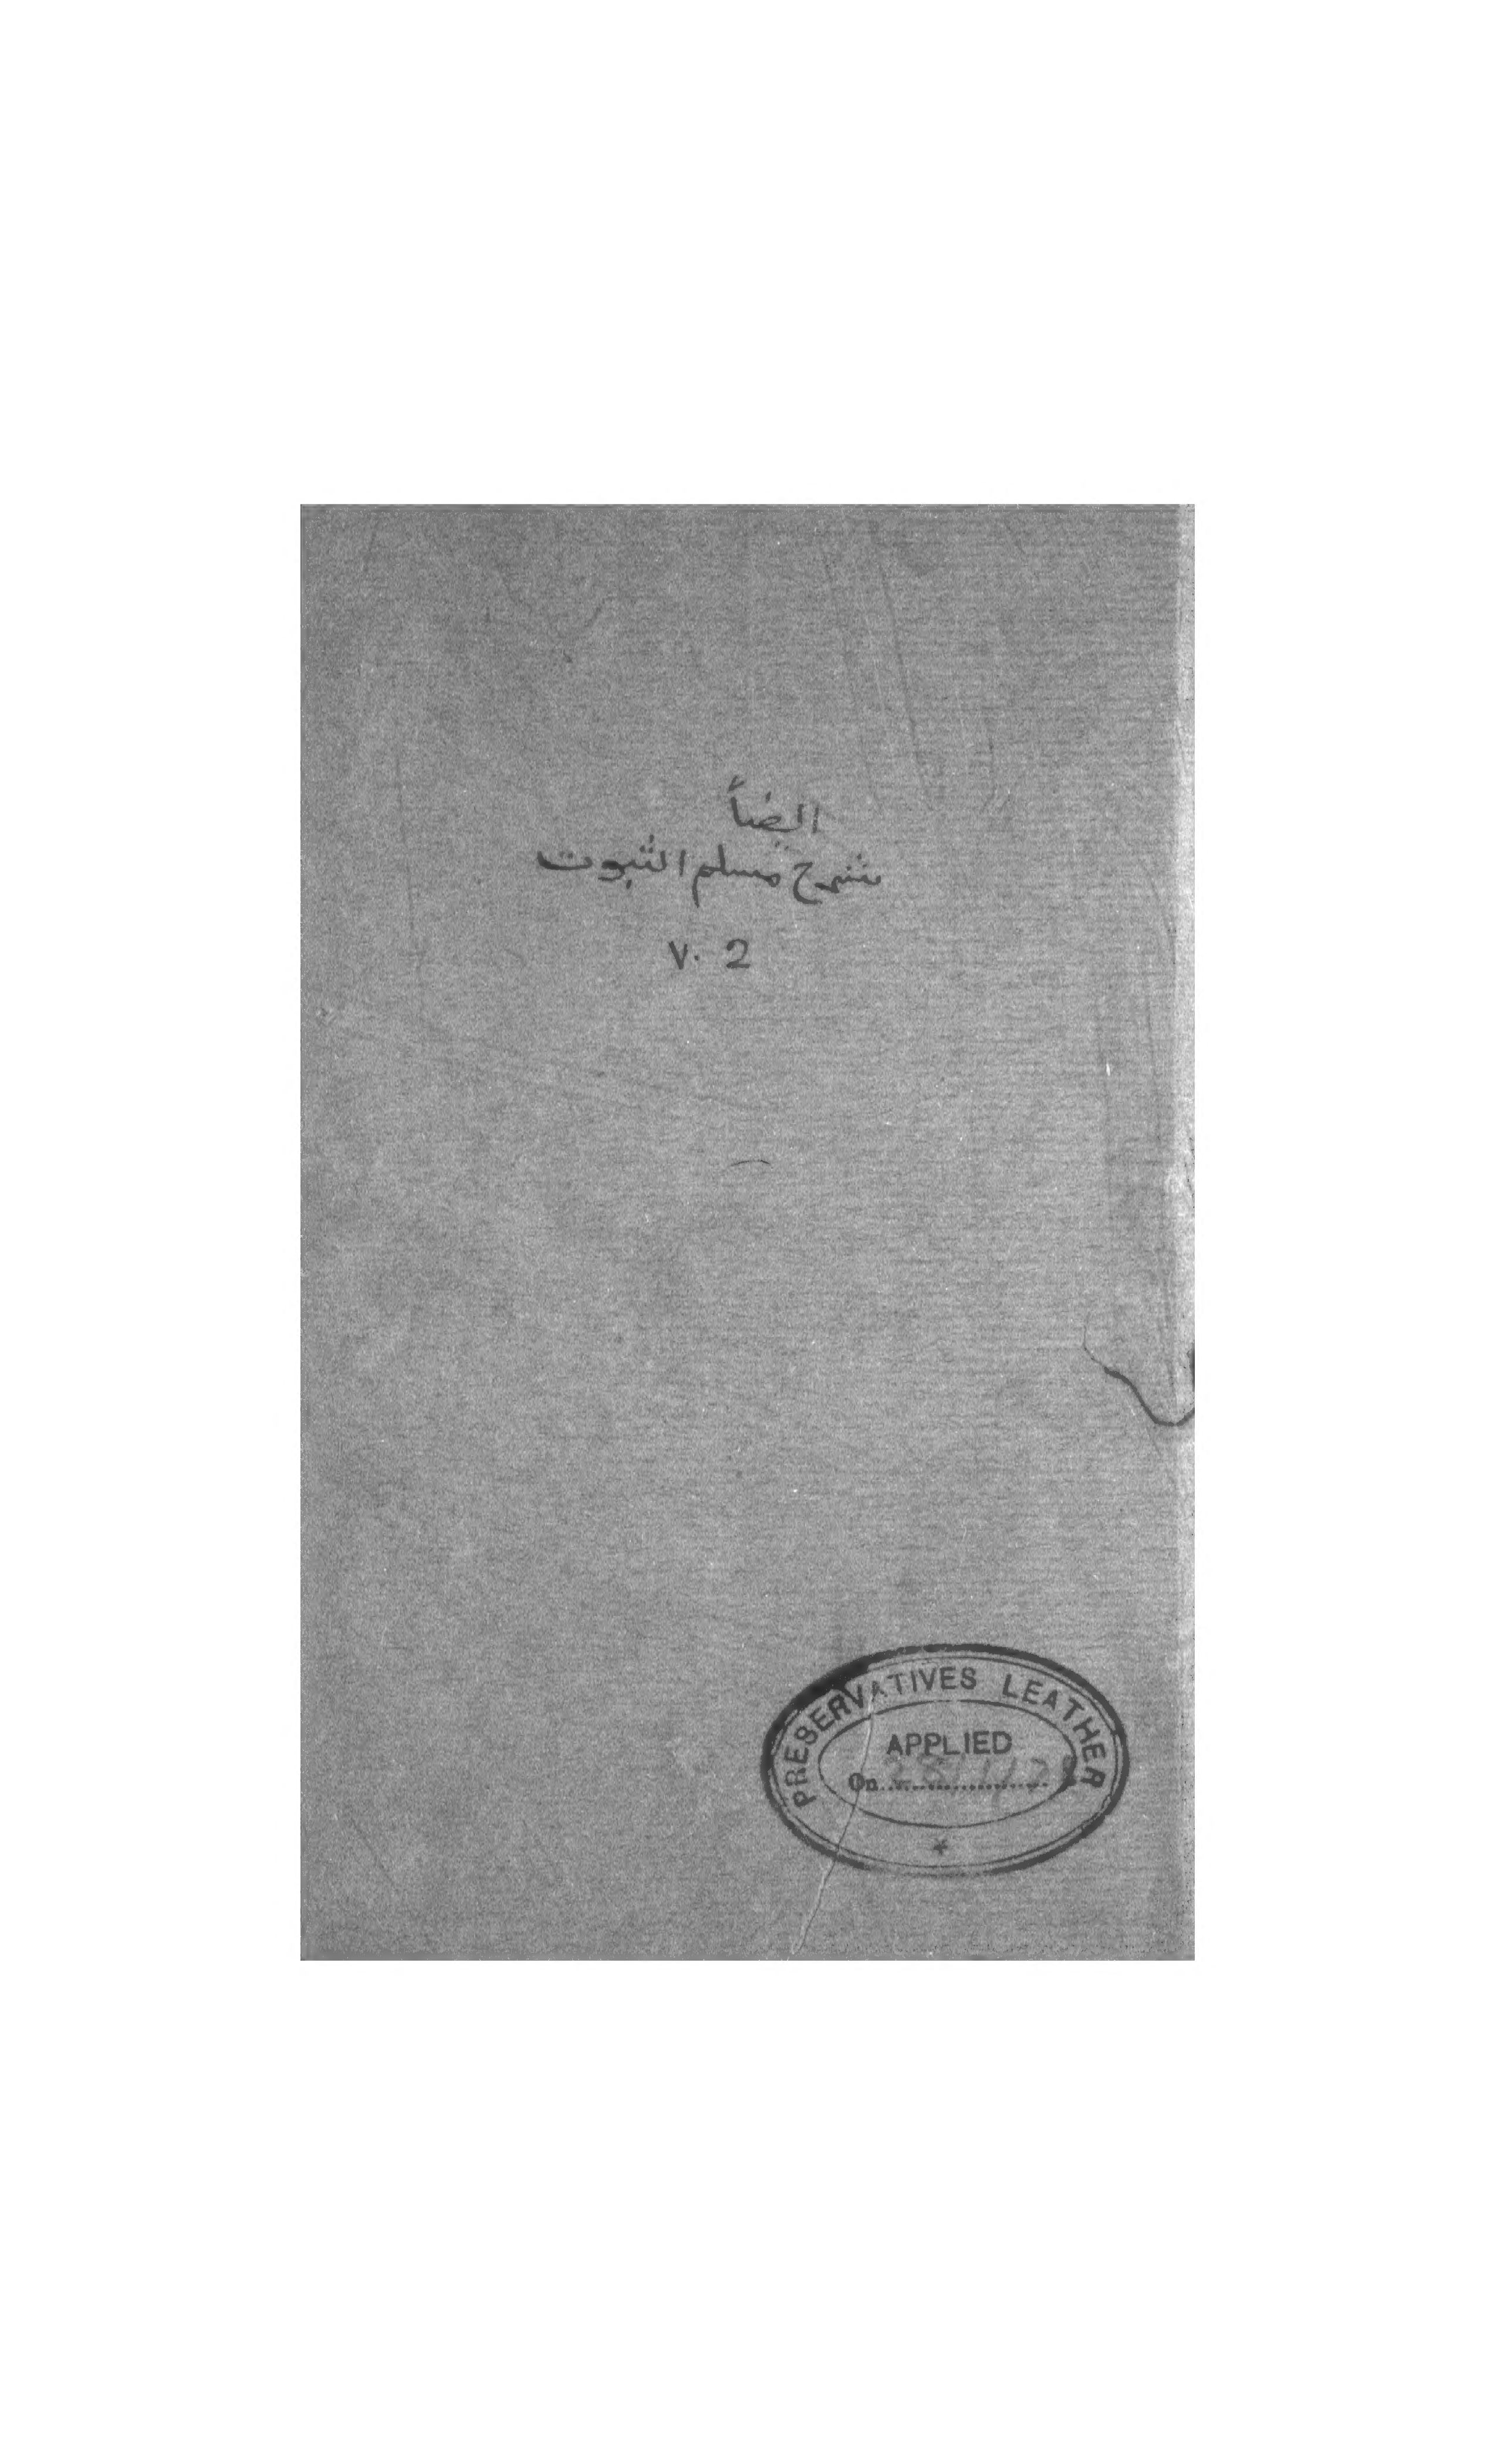 ايضاً
شرح مسلم الثبوت
V. 2
PRESERVATIVES LEATHER
APPLIED
On